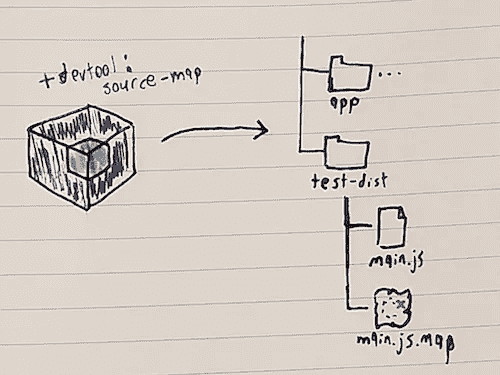 +devtool:
source-map
...
app
test-dist
main.js
main.js.map